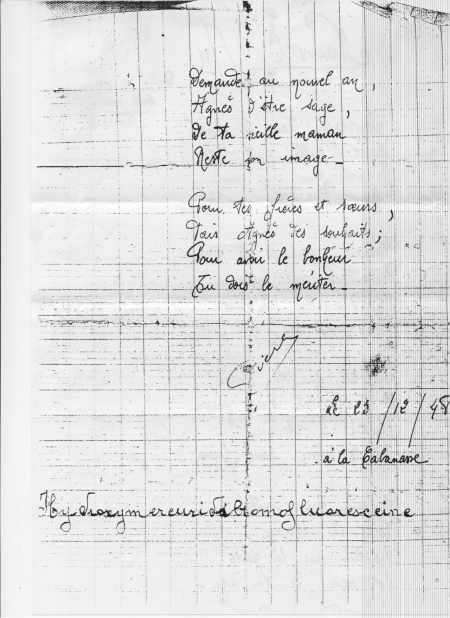 Demande au nouvel an,
Agnès d'être sage,
De ta vieille maman
Reste son image -
Pour tes frères et sœurs,
Fais Agnès des souhaits ;
Pour avoir le bonheur
Tu dois le mériter -
le 23/12/48
à la Cabanasse
Hydroxymercuridibromofluoresceine